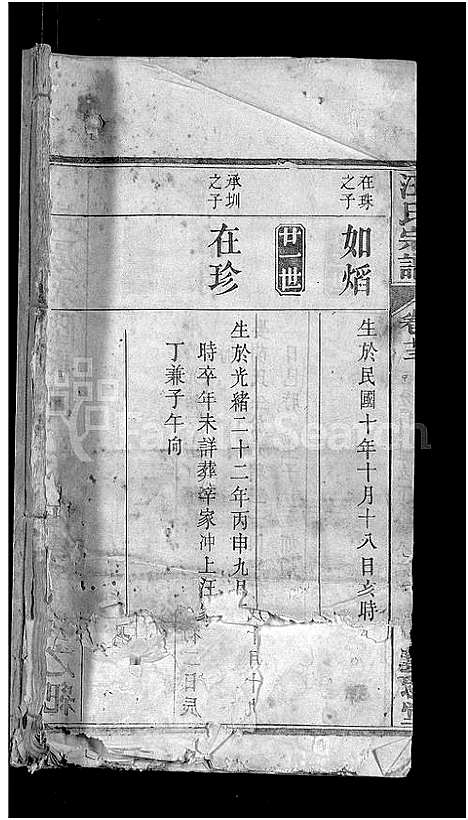 汪氏宗譜
卷
在珠之子
如熖
生於民國十年十月十八日亥時
廿一世
承圳之子
在珍
生於光緒二十二年丙申九月
時卒年未詳葬辛家冲上汪
丁兼子午向
十月十九
二日辰
FamilySearch